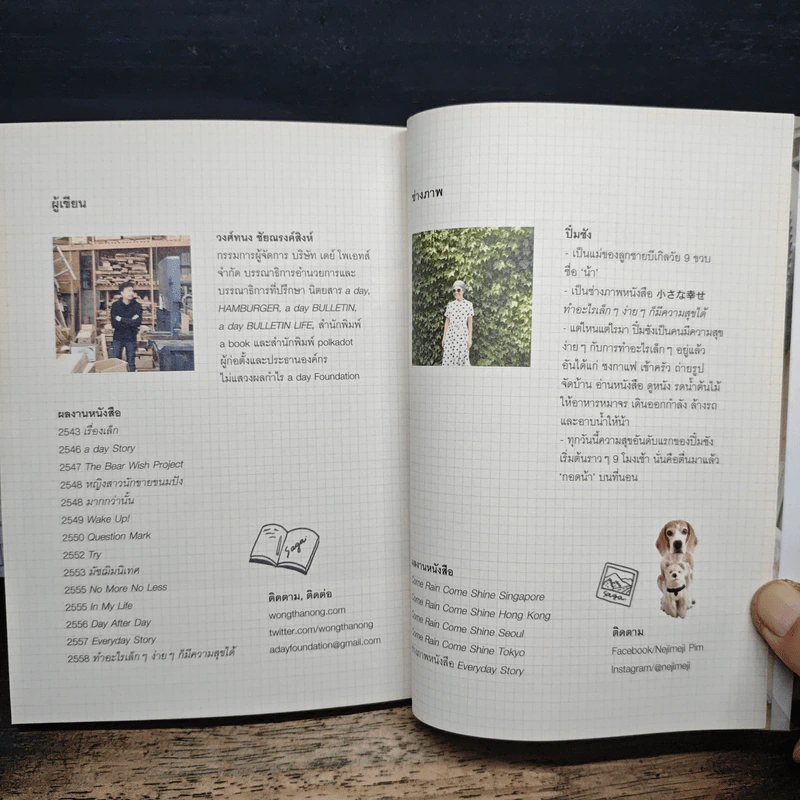 ผู้เขียน
วงศ์ทนง ชัยณรงค์สิงห์
กรรมการผู้จัดการ บริษัท เดย์ โพเอทส์
จำกัด บรรณาธิการอำนวยการและ
บรรณาธิการที่ปรึกษา นิตยสาร a day,
HAMBURGER, a day BULLETIN,
a day BULLETIN LIFE, สำนักพิมพ์
a book และสำนักพิมพ์ polkadot
ผู้ก่อตั้งและประธานองค์กร
ไม่แสวงผลกำไร a day Foundation
ผลงานหนังสือ
2543 เรื่องเล็ก
2546 a day Story
2547 The Bear Wish Project
2548 หญิงสาวนักขายขนมปัง
2548 มากกว่านั้น
2549 Wake Up!
2550 Question Mark
2552 Try
2553 มัชฌิมนิเทศ
2555 No More No Less
2555 In My Life
2556 Day After Day
2557 Everyday Story
2558 ทำอะไรเล็ก ๆ ง่าย ๆ ก็มีความสุขได้
saga
ติดตาม, ติดต่อ
wongthanong.com
twitter.com/wongthanong
adayfoundation@gmail.com
ช่างภาพ
ปิ่มซัง
- เป็นแม่ของลูกชายบีเกิลวัย 9 ขวบ
ชื่อ ‘น้ำ’
- เป็นช่างภาพหนังสือ 小さな幸せ
ทำอะไรเล็ก ๆ ง่าย ๆ ก็มีความสุขได้
- แต่ไหนแต่ไรมา ปิ่มซังเป็นคนมีความสุข
ง่าย ๆ กับการทำอะไรเล็ก ๆ อยู่แล้ว
อันได้แก่ ชงกาแฟ เข้าครัว ถ่ายรูป
จัดบ้าน อ่านหนังสือ ดูหนัง รดน้ำต้นไม้
ให้อาหารหมาจร เดินออกกำลัง ล้างรถ
และอาบน้ำให้น้ำ
- ทุกวันนี้ความสุขอันดับแรกของปิ่มซัง
เริ่มต้นราว ๆ 9 โมงเช้า นั่นคือตื่นมาแล้ว
‘กอดน้ำ’ บนที่นอน
ผลงานหนังสือ
Come Rain Come Shine Singapore
Come Rain Come Shine Hong Kong
Come Rain Come Shine Seoul
Come Rain Come Shine Tokyo
ภาพหนังสือ Everyday Story
saga
ติดตาม
Facebook/Nejimeji Pim
Instagram/@nejimeji